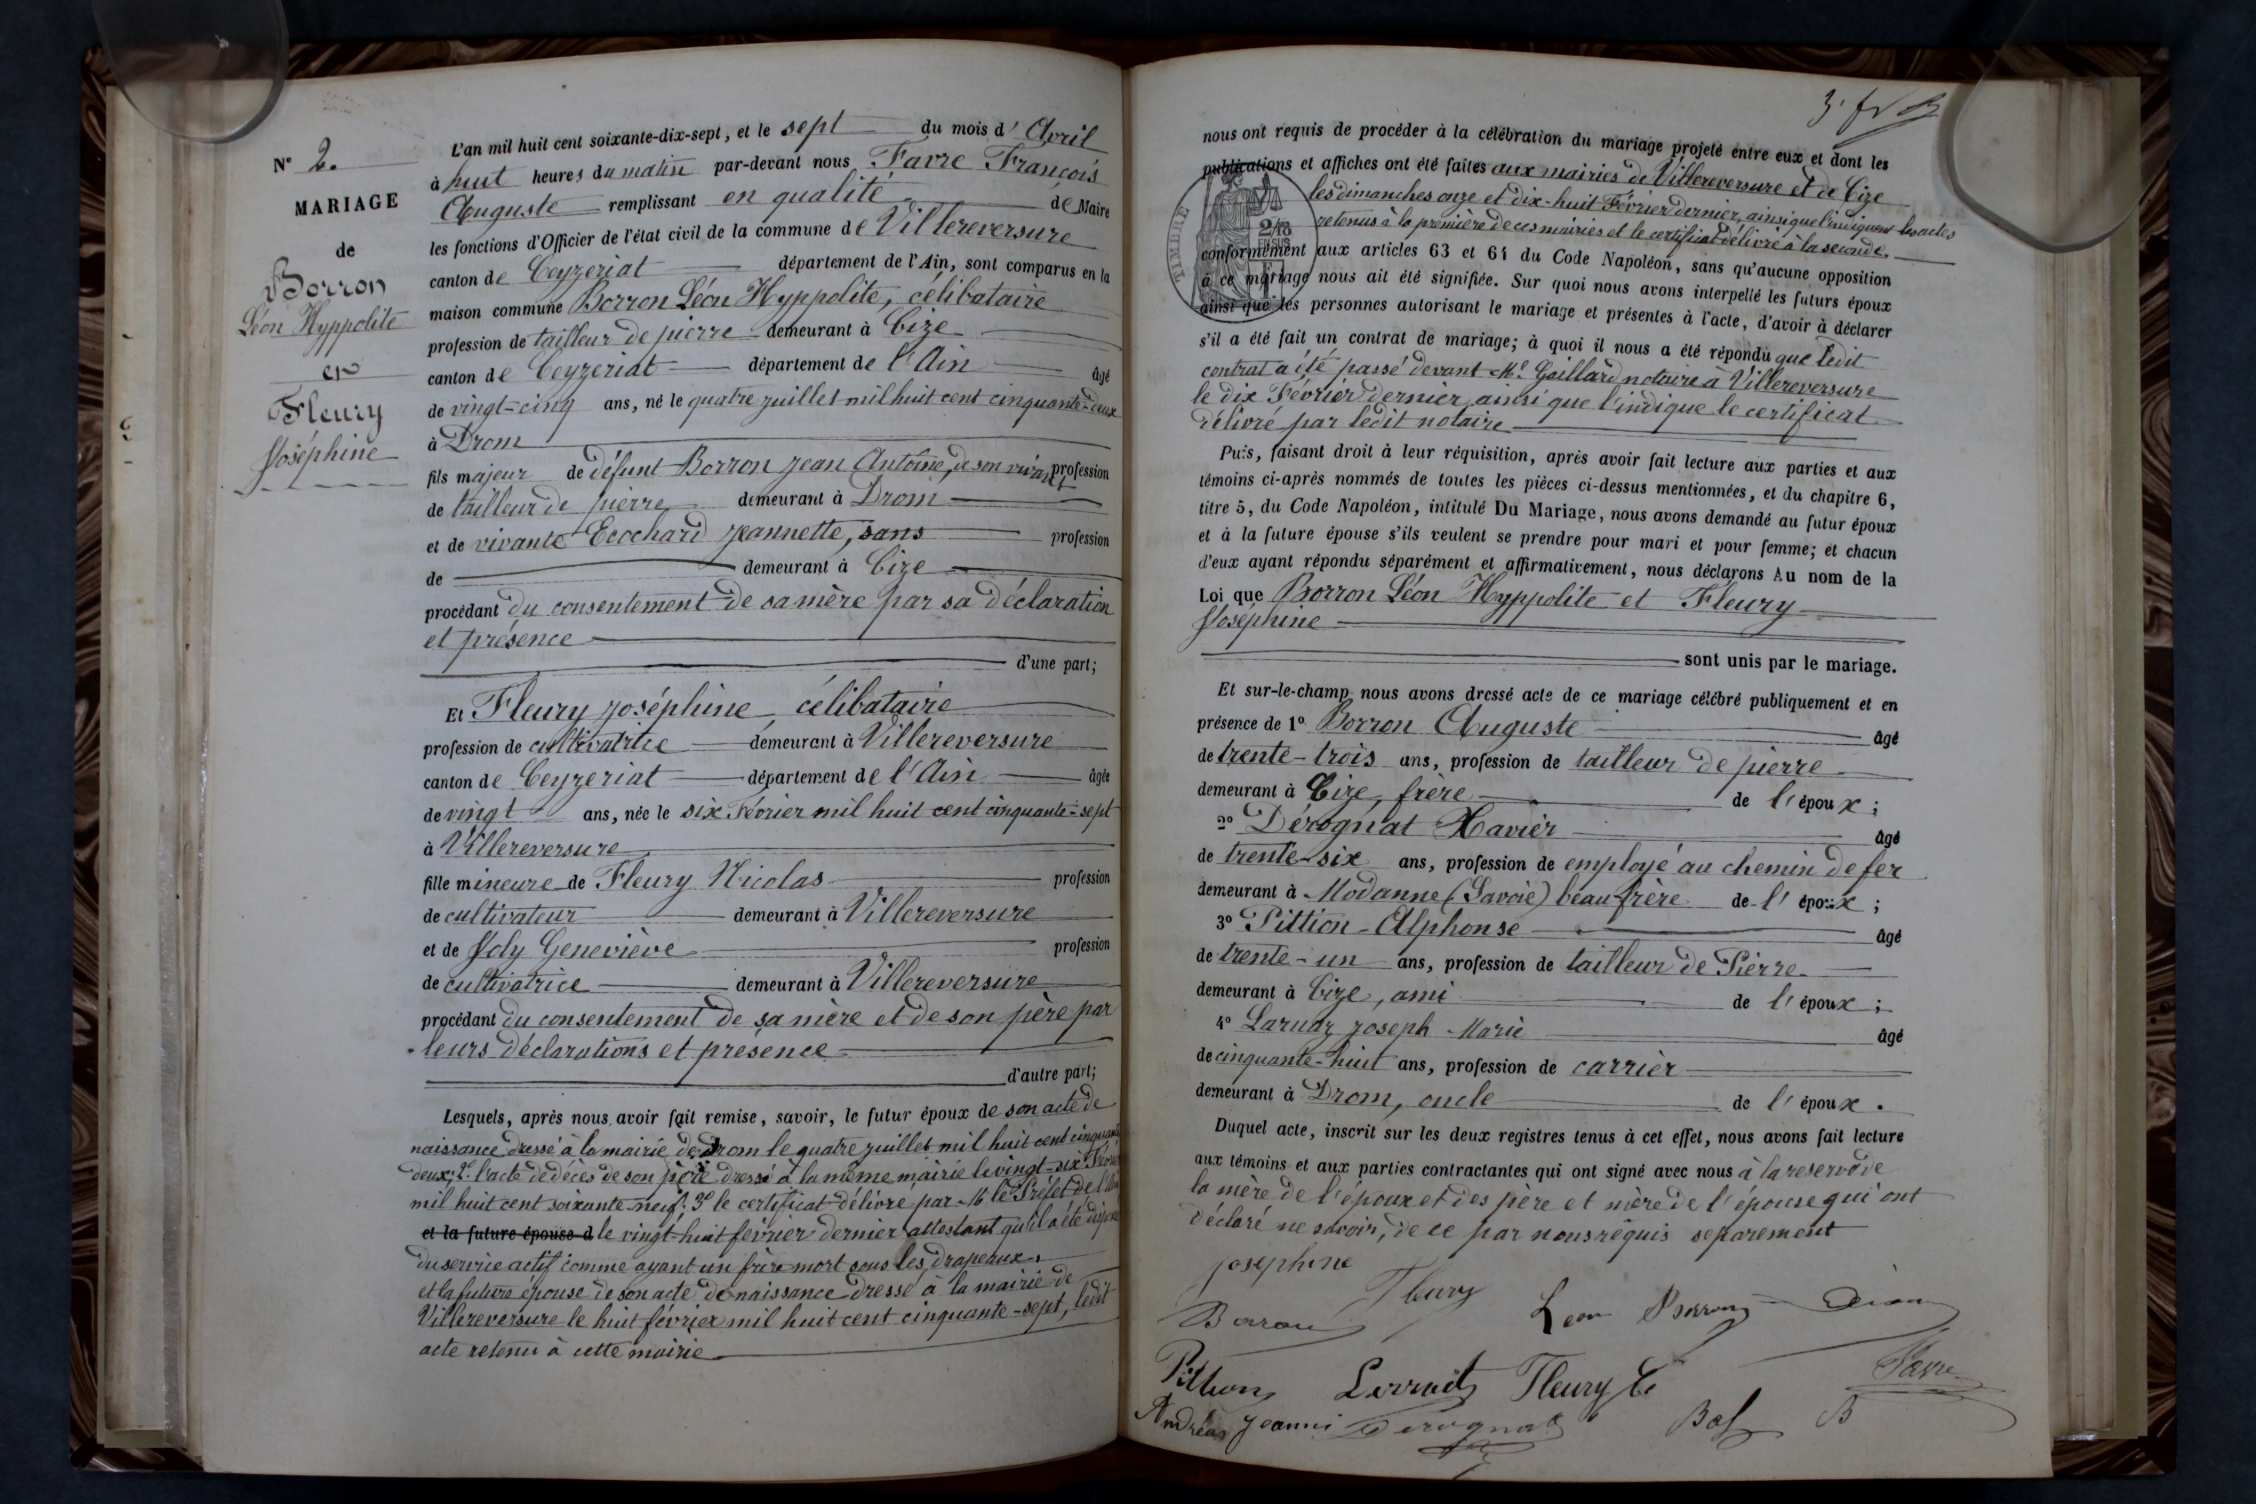 N° 2.
MARIAGE
de
Borron
Léon Hyppolite
et
Fleury
Joséphine
L'an mil huit cent soixante-dix-sept, et le sept du mois d'Avril
à huit heures du matin par-devant nous Favre François
Auguste remplissant en qualité de Maire
les fonctions d'Officier de l'état civil de la commune de Villereversure
canton de Ceyzeriat département de l'Ain, sont comparus en la
maison commune Borron Léon Hyppolite, célibataire
profession de tailleur de pierre demeurant à Cize
canton de Ceyzeriat département de l'Ain âgé
de vingt-cinq ans, né le quatre juillet mil huit cent cinquante-deux
à Drom
fils majeur de défunt Borron Jean Antoine, de son vivant profession
de tailleur de pierre demeurant à Drom
et de vivante Ecochard Jeannette, sans profession
de demeurant à Cize
procédant du consentement de sa mère par sa déclaration
et présence
d'une part;
Et Fleury Joséphine, célibataire
profession de cultivatrice demeurant à Villereversure
canton de Ceyzeriat département de l'Ain âgée
de vingt ans, née le six Février mil huit cent cinquante-sept
à Villereversure
fille mineure de Fleury Nicolas profession
de cultivateur demeurant à Villereversure
et de Joly Geneviève profession
de cultivatrice demeurant à Villereversure
procédant du consentement de sa mère et de son père par
leurs déclarations et présence
d'autre part;
Lesquels, après nous avoir fait remise, savoir, le futur époux de son acte de
naissance dressé à la mairie de Drom le quatre juillet mil huit cent cinquante
deux; 2° l'acte de décès de son père dressé à la même mairie le vingt-six Février
mil huit cent soixante-neuf; 3° le certificat délivré par M le Préfet de l'Ain
et la future épouse d le vingt-huit février dernier attestant qu'il a été dispensé
du service actif comme ayant un frère mort sous les drapeaux.
et la future épouse de son acte de naissance dressé à la mairie de
Villereversure le huit février mil huit cent cinquante-sept, ledit
acte retenu à cette mairie
nous ont requis de procéder à la célébration du mariage projeté entre eux et dont les
publications et affiches ont été faites aux mairies de Villereversure et de Cize
les dimanches onze et dix-huit Février dernier, ainsi que l'indiquent les actes
retenus à la première de ces mairies et le certificat délivré à la seconde.
TIMBRE
conformément aux articles 63 et 64 du Code Napoléon, sans qu'aucune opposition
à ce mariage nous ait été signifiée. Sur quoi nous avons interpellé les futurs époux
ainsi que les personnes autorisant le mariage et présentes à l'acte, d'avoir à déclarer
s'il a été fait un contrat de mariage; à quoi il nous a été répondu que ledit
contrat a été passé devant Me Gaillard notaire à Villereversure
le dix Février dernier, ainsi que l'indique le certificat
délivré par ledit notaire
Puis, faisant droit à leur réquisition, après avoir fait lecture aux parties et aux
témoins ci-après nommés de toutes les pièces ci-dessus mentionnées, et du chapitre 6,
titre 5, du Code Napoléon, intitulé Du Mariage, nous avons demandé au futur époux
et à la future épouse s'ils veulent se prendre pour mari et pour femme; et chacun
d'eux ayant répondu séparément et affirmativement, nous déclarons Au nom de la
Loi que Borron Léon Hyppolite et Fleury
Joséphine
sont unis par le mariage.
Et sur-le-champ nous avons dressé acte de ce mariage célébré publiquement et en
présence de 1° Borron Auguste âgé
de trente-trois ans, profession de tailleur de pierre
demeurant à Cize, frère de l'époux;
2° Dérognat Xavier âgé
de trente-six ans, profession de employé au chemin de fer
demeurant à Modanne (Savoie) beau-frère de l'époux;
3° Pittion Alphonse âgé
de trente-un ans, profession de tailleur de Pierre
demeurant à Cize, ami de l'époux;
4° Laruaz Joseph Marie âgé
de cinquante-huit ans, profession de carrier
demeurant à Drom, oncle de l'époux.
Duquel acte, inscrit sur les deux registres tenus à cet effet, nous avons fait lecture
aux témoins et aux parties contractantes qui ont signé avec nous à la réserve de
la mère de l'époux et des père et mère de l'épouse qui ont
déclaré ne savoir, de ce par nous réquis séparement
josephine
Fleury
Borron
Leon Borron
Pittion
Fleury
Favre
Jeanni Derognat